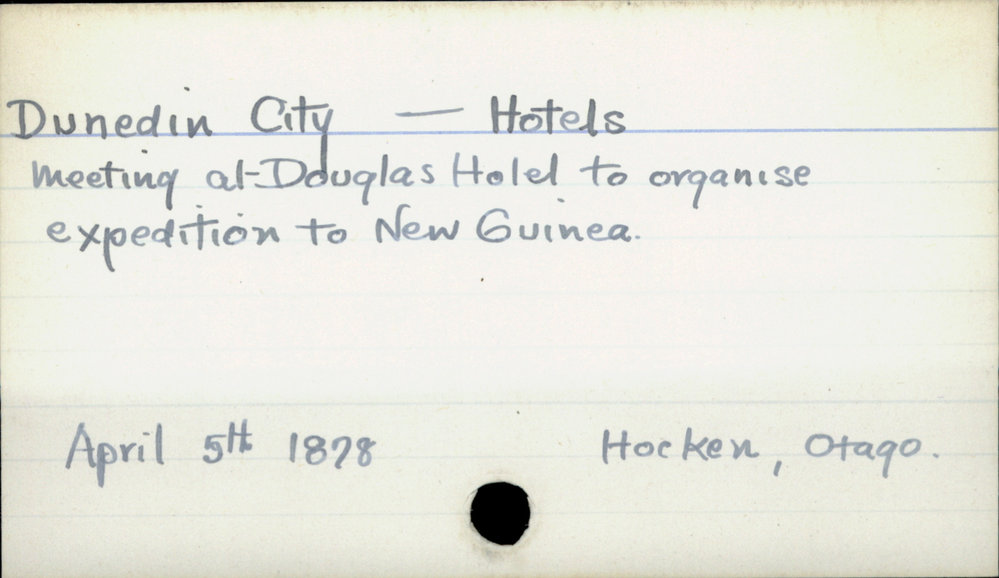 Dunedin City — Hotels
meeting at Douglas Hotel to organise
expedition to New Guinea.
April 5th 1878
Hocken, Otago.